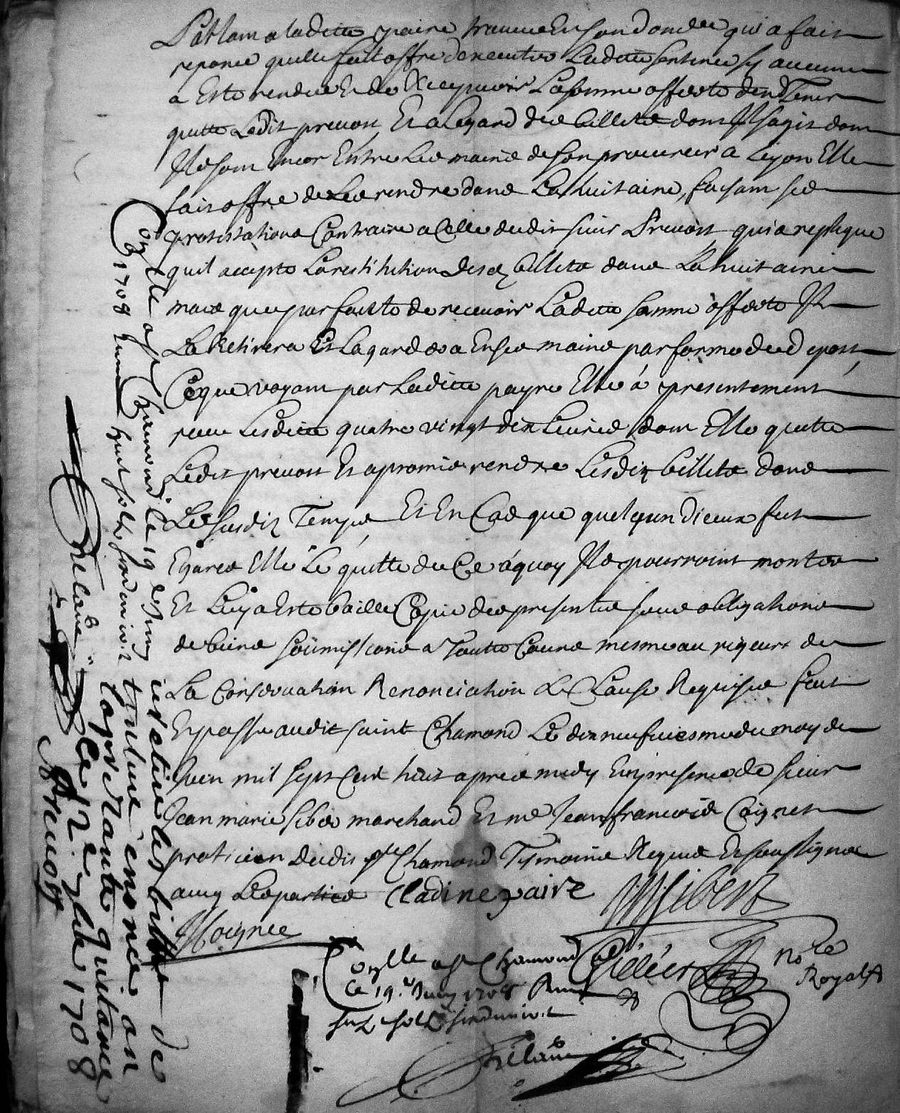 parlant a laditte payre trouvée en son domicile qui a fait
reponce quelle fait offre dexecuter Laditte sentence sy aucune
a Esté rendüe Et de Recepvoir La somme offerte den Tenir
quitte Ledit prevost Et a Legard des billets dont Il sagit dont
Ils sont Encor Entre Les mains de son procureur a Lyon Elle
fait offre de Les rendre dans La huitaine, faisant ses
protestations Contraire a Celle dudit sieur Prevost qui a replique
quil accepte La restitution desd billets dans La huitaine
mais que par faulte de recevoir Laditte somme offerte Il
La Retirera Et La gardera En ses mains par forme de depost
Ce que voyant par Laditte payre Elle à presentement
receu Lesdittes quatre vingt dix Livres dont Elle quitte
Ledit prevost Et a promis rendre Lesdits billets dans
Le susdit Temps Et En Cas que quelqun dieux fut
Egarés Elle Le quitte de Ce à quoy Ils pourroint monter
Et Luy a Esté baillé Copie des presentes sous obligations
de biens soumissions a Toutte Cours mesme au rigeurs de
La Conservation Renonciation Clause Requise fait
Et passé audit saint Chamond Le dix neufviesme du moy de
Juin mil sept Cent huit apres midy En presence de sieur
Jean marie sibert marchand Et me Jean francois Coignet
praticien dudit st Chamond Tesmoins Requis Et soussignes
avec Les parties Cladine paire
Coignet
MSibert
nore
Royal
Conlle a st Chamond
Ce 19e Juin 1708 Reçu
huit sols
Conlle a st Chamond Ce 19e Juin
1708 Reçu huit sols
je retire les billet de
lapresante quitance
ce 12e
1708
Prevost